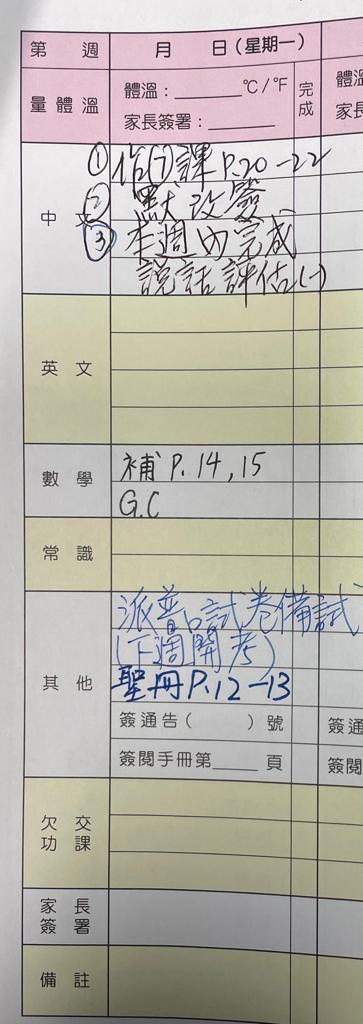 第 週 月 日(星期一)
量體溫 體溫：______ °C/°F 完成 體溫
家長簽署：______ 家長
中文 ① 作(7)課 P.20-22
② 默改簽
③ 本週內完成
說話評估(一)
英文
數學 補 P.14,15
G.C
常識
其他 派普口試卷備試
(下週開考)
聖冊 P.12-13
簽通告( )號 簽通
簽閱手冊第____頁 簽閱
欠交功課
家長簽署
備註